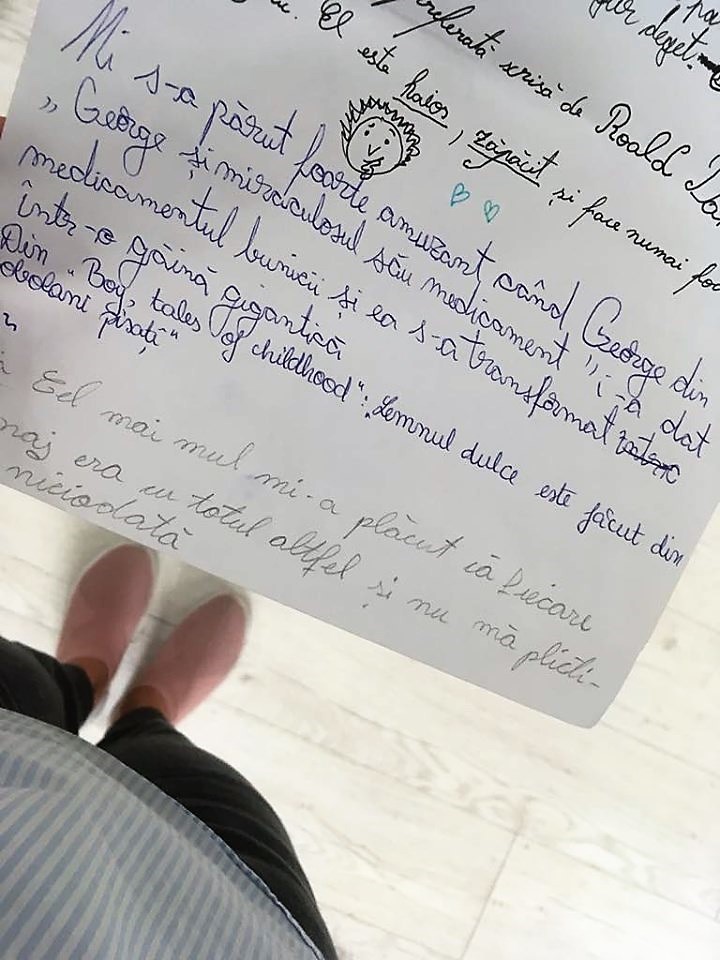 deget.
preferată scrisă de Roald
El este haios, zăpăcit și face numai
Mi s-a părut foarte amuzant când George din
„George și miraculosul său medicament" i-a dat
medicamentul bunicii și ea s-a transformat
într-o găină gigantică
Din "Boy, tales of childhood": „Lemnul dulce este făcut din
obolani pisați"
Eel mai mul mi-a plăcut că fiecare
naj era cu totul altfel și nu mă plicti-
niciodată